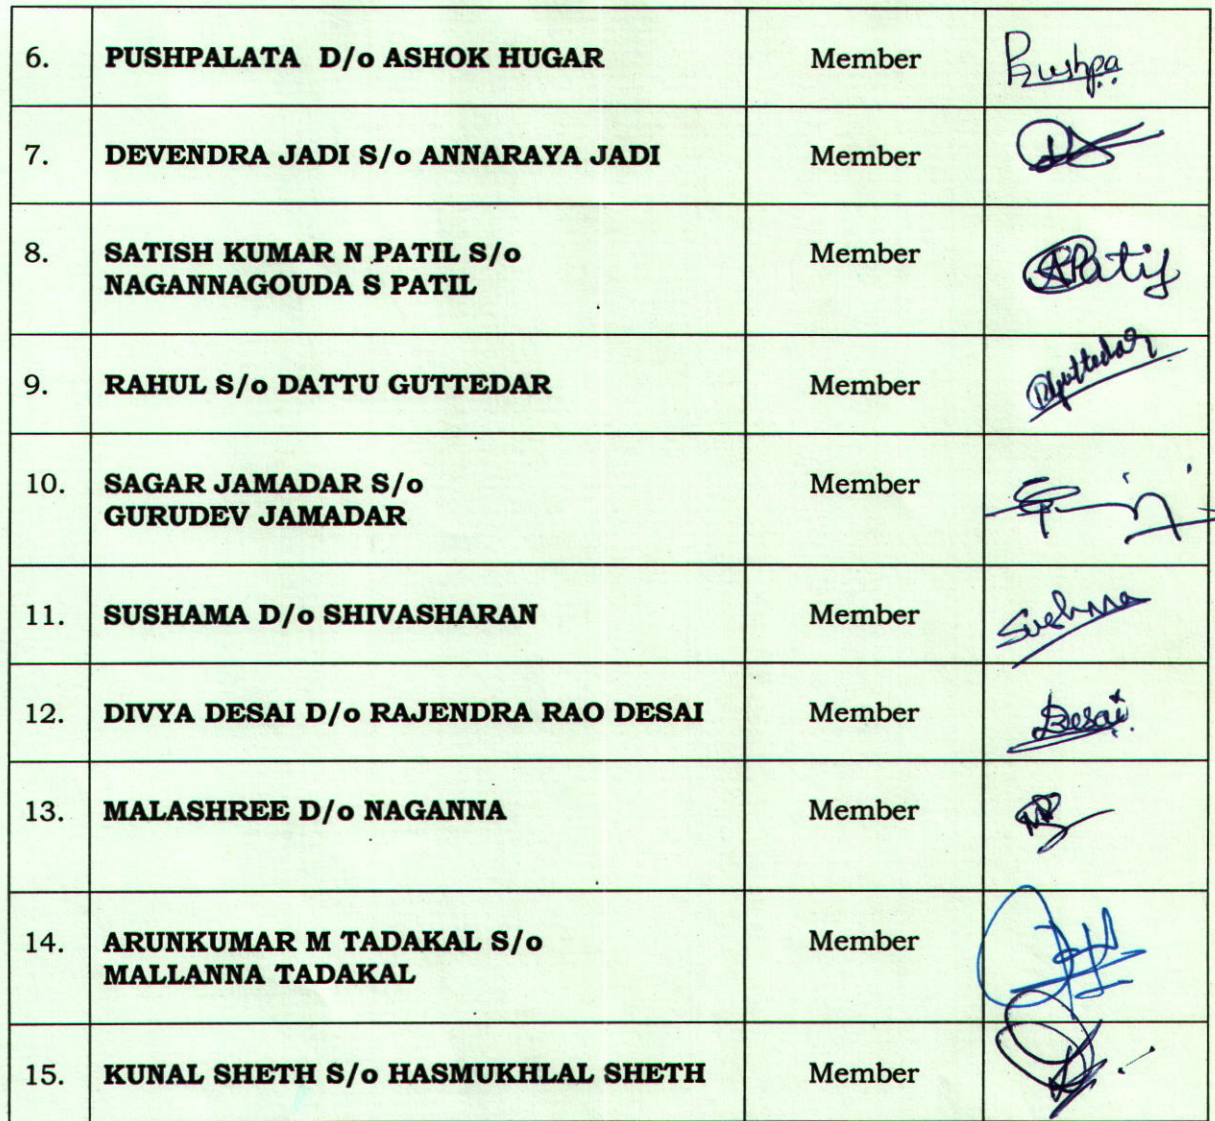 6. PUSHPALATA D/o ASHOK HUGAR Member Pushpa
7. DEVENDRA JADI S/o ANNARAYA JADI Member
8. SATISH KUMAR N PATIL S/o Member SPatil
NAGANNAGOUDA S PATIL
9. RAHUL S/o DATTU GUTTEDAR Member Guttedar
10. SAGAR JAMADAR S/o Member
GURUDEV JAMADAR
11. SUSHAMA D/o SHIVASHARAN Member Sushma
12. DIVYA DESAI D/o RAJENDRA RAO DESAI Member Desai
13. MALASHREE D/o NAGANNA Member
14. ARUNKUMAR M TADAKAL S/o Member
MALLANNA TADAKAL
15. KUNAL SHETH S/o HASMUKHLAL SHETH Member